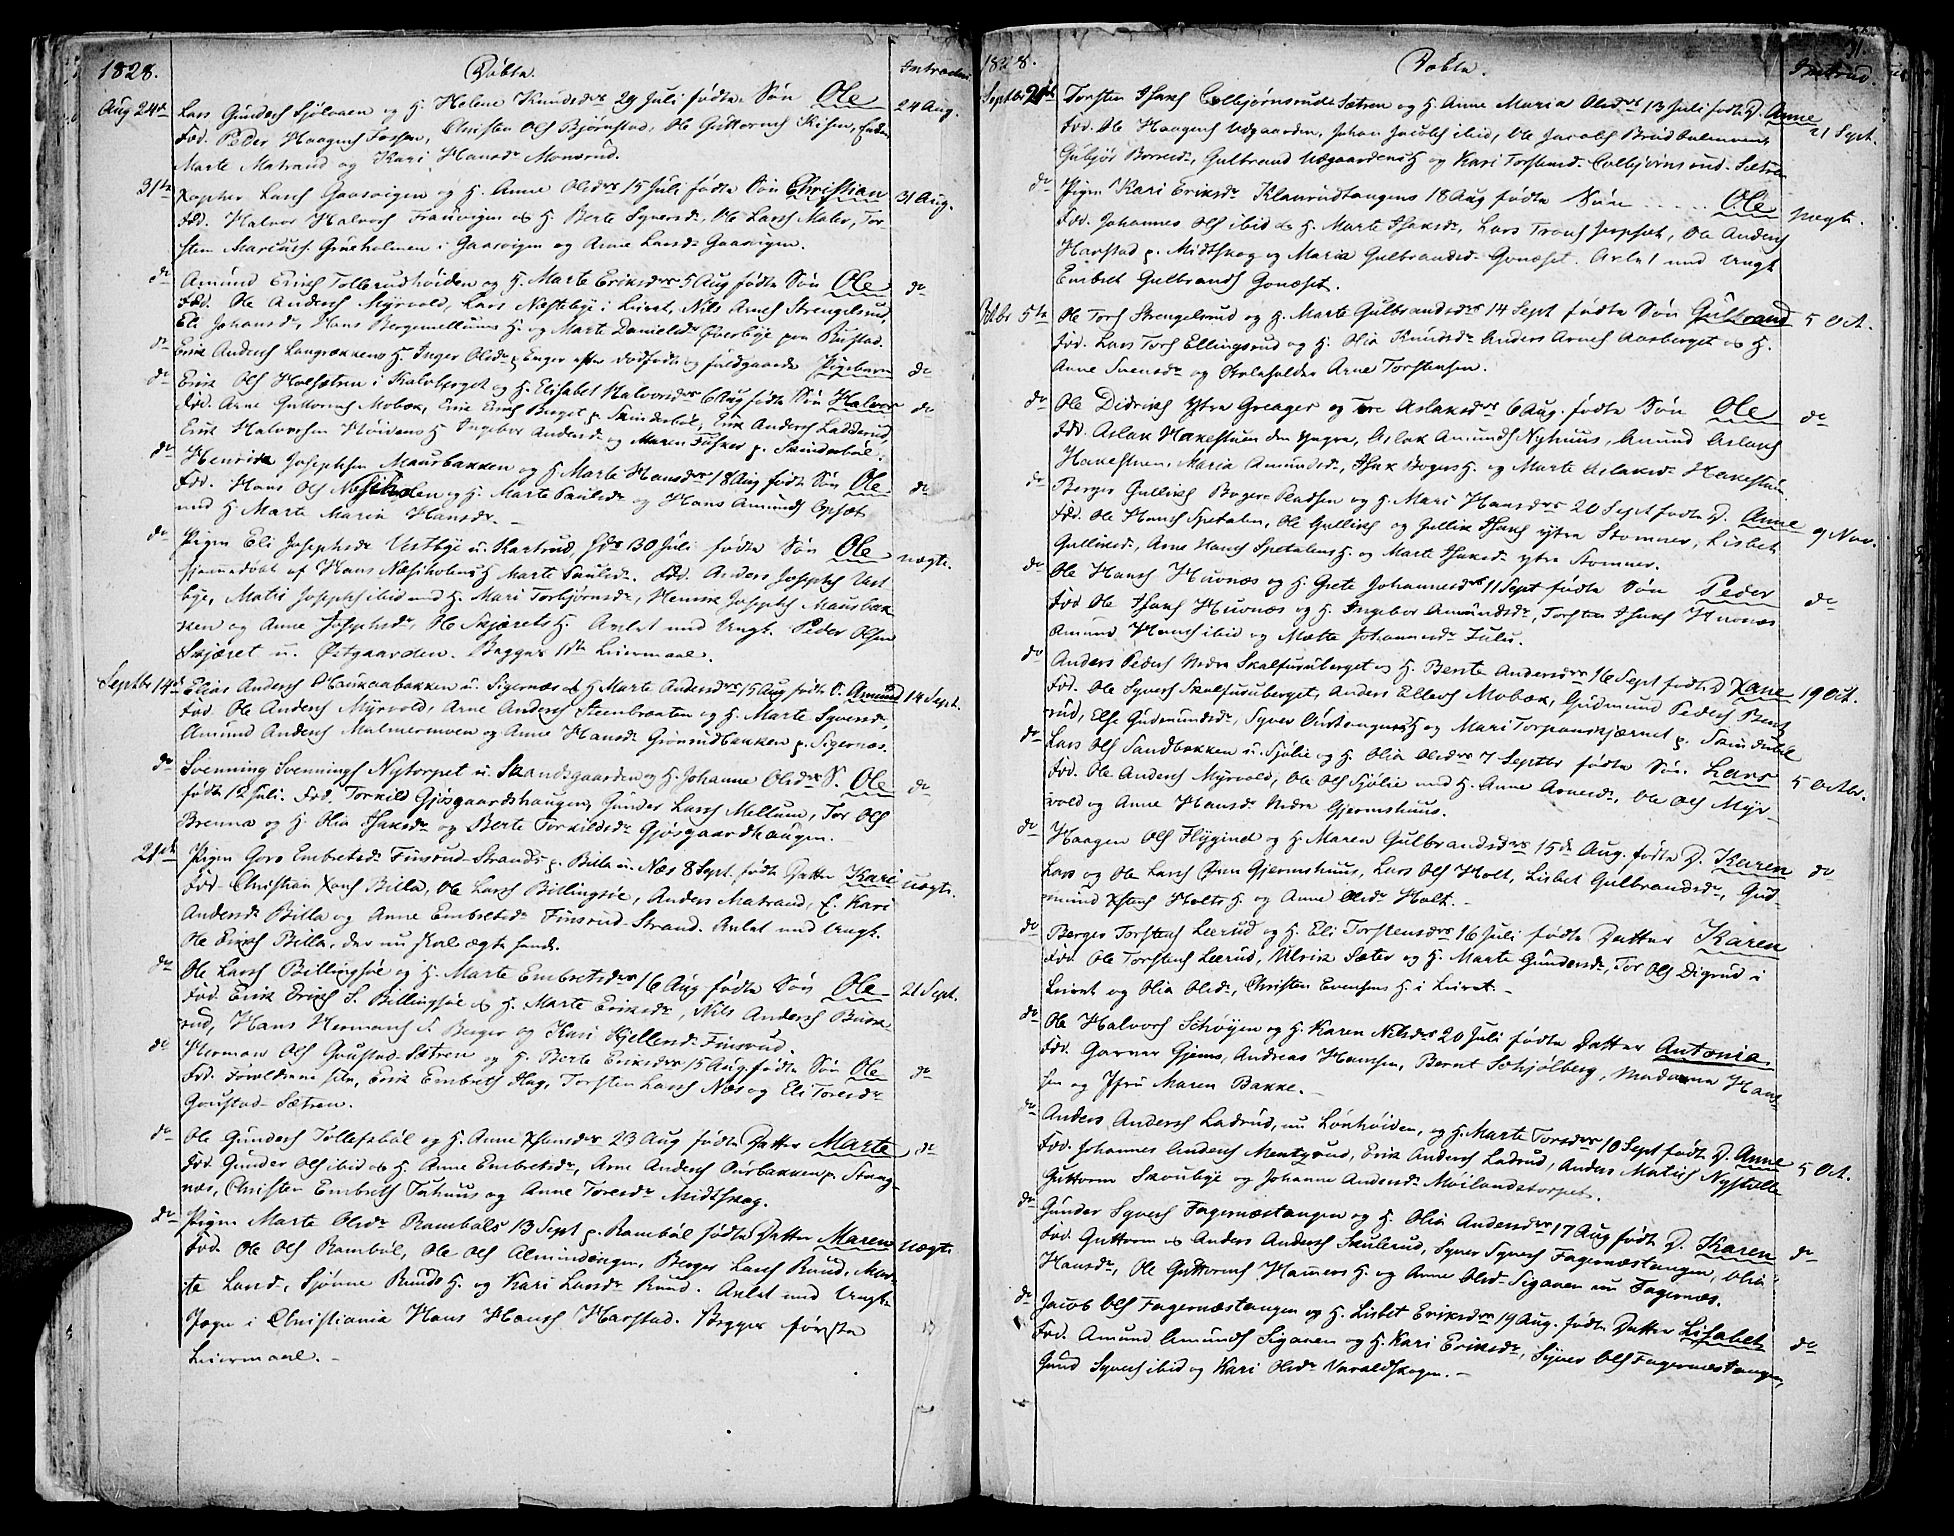 1828. Døbte. Introduc.
Aug 24de Lars Gunders. Sjølvaen og H. Helene Knudsdr 29 Juli fødte Søn Ole 24 Aug.
Fad. Peder Haagens. Fossen, Christen Ols. Bjørnstad, Ole Guttorms. Kisen,
Marte Matrand og Kari Hansdr Monsrud.
31te Larss. Gaasvigen og H. Anne Olsdr 15 Juli fødte Søn Christian 31 Aug.
Fad. Halvor Halvors. Fransvigen og H. Berte Syversdr, Ole Larss. Maler, Tor-
sten Marcus. Grøsholmen i Gaasvigen og Anne Larsdr Gaasvigen.
do Amund Erichs. Tollerudhøiden og H. Marte Eriksdr 5 Aug fødte Søn Ole do
Fad. Ole Anders. Myrvold, Lars Nestebye i Leiret, Nils Arnes. Strengelsrud,
Eli Johansdr, Hans Bergemellums H. og Marte Danielsdr Øverbye paa Bustad.
do Erik Anders. Langrækkens H. Inger Olsdr dødfødt og fuldgaaede Pigebarn do
do Erik Ols. Holsætren i Kalvberget og H. Elisabet Halvorsdr 6 Aug fødte Søn Halvor do
Fad. Arne Guttorms. Mobæk, Erik Erichs. Berget p. Skinderbøl, Erik Anders. Ladderud,
Erik Halvorsen Høidens H. Ingebor Andersdr og Maren Fosker p. Skinderbøl.
do Henrik Josephsen Mausbakken og H. Marte Hansdr 18 Aug fødte Søn Ole do
Fad. Hans Ols. Næsiholen og H. Marte Paulsdr og Hans Amunds. Opset
med H. Marte Maria Hansdr.
do Pigen Eli Josephsdr Vestbye u. Kastrud, 30 Juli fødte Søn Ole uægte.
hjemmedøbt af Hans Næsiholens H. Marte Paulsdr. Fad. Anders Josephs. Vest-
bye, Matis Josephs. ibid med H. Mari Torbjørnsdr, Henrik Josephs. Mausbak-
ken og Anne Josephsdr, Ole Skjærets H. Avlet med Ungk. Peder Olsen
Skjæret u. Østgaarden. Begges 1ste Leiermaal.
Septbr 14de Elias Anders. Haukaabakken u. Sigernæs og H. Marte Andersdr 15 Aug fødte S. Amund 14 Sept.
Fad. Ole Anders. Myrvold, Arne Anders. Steenbraaten og H. Marte Syversdr,
Amund Anders. Malmermoen og Anne Hansdr Gjønsrudbakken p. Sigernæs.
do Svenning Svennings. Nytorpet u. Skandsgaarden og H. Johanne Olsdr S. Ole do
fødte 12 Juli. Fad. Torkild Gjøsgaardshaugen, Gunder Larss. Mellum, Tor Ols.
Brenna og H. Olia Isaksdr og Berte Torkildsdr Gjøsgaardhaugen.
21de Pigen Goro Embretsdr Finsrud-Strand p. Billa u. Næs 8 Sept. fødte Datter Kari uægte.
Fad. Christian Billa, Ole Larss. Billingsøe, Anders Matrand, Kari
Andersdr Billa og Anne Embretsdr Finsrud-Strand. Avlet med Ungk.
Ole Erichs. Billa, der nu skal ægte hende.
do Ole Larss. Billingsøe og H. Marte Embretsdr 16 Aug fødte Søn Ole 21 Sept.
Fad. Erik Erichs. S. Billingsøe og H. Marte Eriksdr, Nils Anders. Busk-
rud, Hans Hermans. S. Berger og Kari Kjellsdr Finsrud.
do Herman Ols. Goustad-Sætren og H. Berte Eriksdr 15 Aug. fødte Søn Ole do
Fad. Forældrene selv, Erik Embrets. Hag, Torsten Larss. Næs og Eli Toresdr
Goustad-Sætren.
do Ole Gunders. Tollefsbøl og H. Anne Hansdr 23 Aug fødte Datter Marte do
Fad. Gunder Ols. ibid og H. Anne Embretsdr, Arne Anders. Aurbakken p. Strøg-
næs, Christen Embrets. Tuhuus og Anne Toresdr Midtskog.
do Pigen Marte Olsdr Rambøls 13 Sept p. Rambøl fødte Datter Maren uægte
Fad. Ole Ols. Rambøl, Ole Ols. Almindingen, Berger Larss. Ruud, Mar-
te Larsdr, Sjønne Ruuds H. og Kari Larsdr Ruud. Avlet med Ungk.
Jogn i Christiania Hans Hans. Harstad. Begges første
Leiermaal.
1828. Døbte. Introd.
Septbr 21de Torsten Isaks. Colbjørnsrud-Sætren og H. Anne Maria Olsdr 13 Juli fødte D. Anne 21 Sept.
Fad. Ole Haagens. Udgaarden, Johan Jacobs. ibid, Ole Jacobs.
Gubjør Gulbrand Udgaardens H. og Kari Torstensdr Colbjørnsrud-Sætren.
do Pigen Kari Eriksdr Klanrudtangens 18 Aug fødte Søn Ole uægte.
Fad. Johannes Ols. ibid og H. Marte Isaksdr, Lars Trons. Jerpset, Ole Anders.
Harstad p. Midtskog og Maria Gulbrandsdr Gonæset. Avlet med Ungk
Embret Gulbrands. Gonæset.
Octbr 5te Ole Tors. Strengelsrud og H. Marte Gulbrandsdr 14 Sept fødte Søn Gulbrand 5 Oct.
Fad. Lars Tors. Ellingsrud og H. Olia Knudsdr Anders Arnes. Aasberget og H.
Anne Svensdr og Skoleholder Arne Torstensen.
do Ole Didriks. ytre Greager og Tore Aslaksdr 6 Aug. fødte Søn Ole do
Fad. Aslak Hakestuen den yngre, Aslak Amunds. Nyhuus, Amund Aslaks.
Hakestuen, Maria Amundsdr, Isak Boger H. og Marte Aslaksdr Hakestuen
do Berger Gulliks. Boger-Pladsen og H. Mari Hansdr 20 Sept fødte D. Anne 9 Nov.
Fad. Ole Hans. Spetalen, Ole Gulliks. og Gullik Isaks. ytre Stommer, Lisbet
Gulliksdr, Arne Hans. Spetalens H. og Marte Isaksdr ytre Stommer.
do Ole Hans. Huvnæs og H. Grete Johannesdr 11 Sept fødte Søn Peder do
Fad Ole Isaks. Huvnæs og H. Ingebor Amundsdr, Torsten Isaks. Huvnæs
Amund Hans. ibid og Mætte Johannesdr Julu.
do Anders Peders. nedre Skalfuruberget og H. Berte Andersdr 16 Sept fødte D. Jane 19 Oct.
Fad. Ole Syvers. Skalfuruberget, Anders Ellevs. Mobæk, Gudmund Peders. Bent-
rud, Else Gudmundsdr, Syver Austangens H. og Mari Torpanskjærnet p. Skinderbøl
do Lars Ols. Sandbakken u. Sjølie og H. Olia Olsdr 7 Septbr fødte Søn. Lars 5 Octbr.
Fad. Ole Anders. Myrvold, Ole Ols. Sjølie med H. Anne Arnesdr, Ole Ols. Myr-
vold og Anne Hansdr Nedre Gjermshuus.
do Haagen Ols. Flygind og H. Maren Gulbrandsdr 15de Aug. fødte D. Karen do
Lars og Ole Larss. Øvre Gjermshuus, Lars Ols. Holt, Lisbet Gulbrandsdr, Gud-
mund Holts H. og Anne Olsdr Holt.
do Berger Torstens. Leerud og H. Eli Torstensdr 16 Juli fødte Datter Karen
Fad. Ole Torstens. Leerud, Ulrik Sæter og H. Marte Gundersdr, Tor Ols. Digrud i
Leiret og Olia Olsdr, Christen Evensens H. i Leiret.
do Ole Halvors. Schøyen og H. Karen Nilsdr 20 Juli fødte Datter Antonia.
Fad. Garver Gjems, Andreas Hansen, Bernt Schjølberg, Madame Han-
sen og Jfru Maren Bakke.
do Anders Anders. Ladrud, nu Lønhøiden, og H. Marte Torsdr 10 Sept fødte D. Anne 5 Oct.
Fad. Johannes Anders. Mentzrud, Erik Anders. Ladrud, Anders Matis. Nystelle
Guttorm Skoubye og Johanne Andersdr Moilandstorpet.
do Gunder Syvers. Fagernæstangen og H. Olia Andersdr 17 Aug fødte D. Karen do
Fad. Guttorm og Anders Anders. Skulerud, Syver Syvers. Fagernæstangen, Olia
Hansdr, Ole Guttorms. Hammers H. og Anne Olsdr Siganen nu Fagernæs.
do Jacob Ols. Fagernæstangen og H. Lisbet Eriksdr 19 Aug. fødte Datter Lisabet do
Fad. Amund Amunds. Siganen og H. Kari Eriksdr, Syver Ols. Fagernæstangen,
Gund Syvers. ibid og Kari Olsdr Varaldskogen.